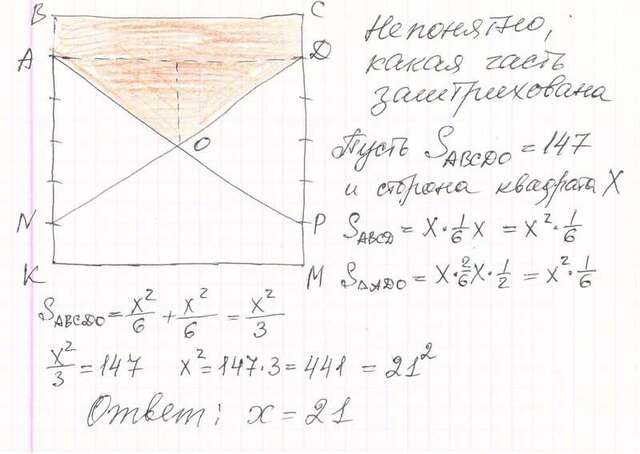 B
C
A
D
O
N
P
K
M
Непонятно,
какая часть
заштрихована
Пусть S_ABCDO = 147
и сторона квадрата X
S_ABCD = X · 1/6 X = X² · 1/6
S_ΔADO = X · 2/6 X · 1/2 = X² · 1/6
S_ABCDO = X²/6 + X²/6 = X²/3
X²/3 = 147 X² = 147 · 3 = 441 = 21²
Ответ: X = 21